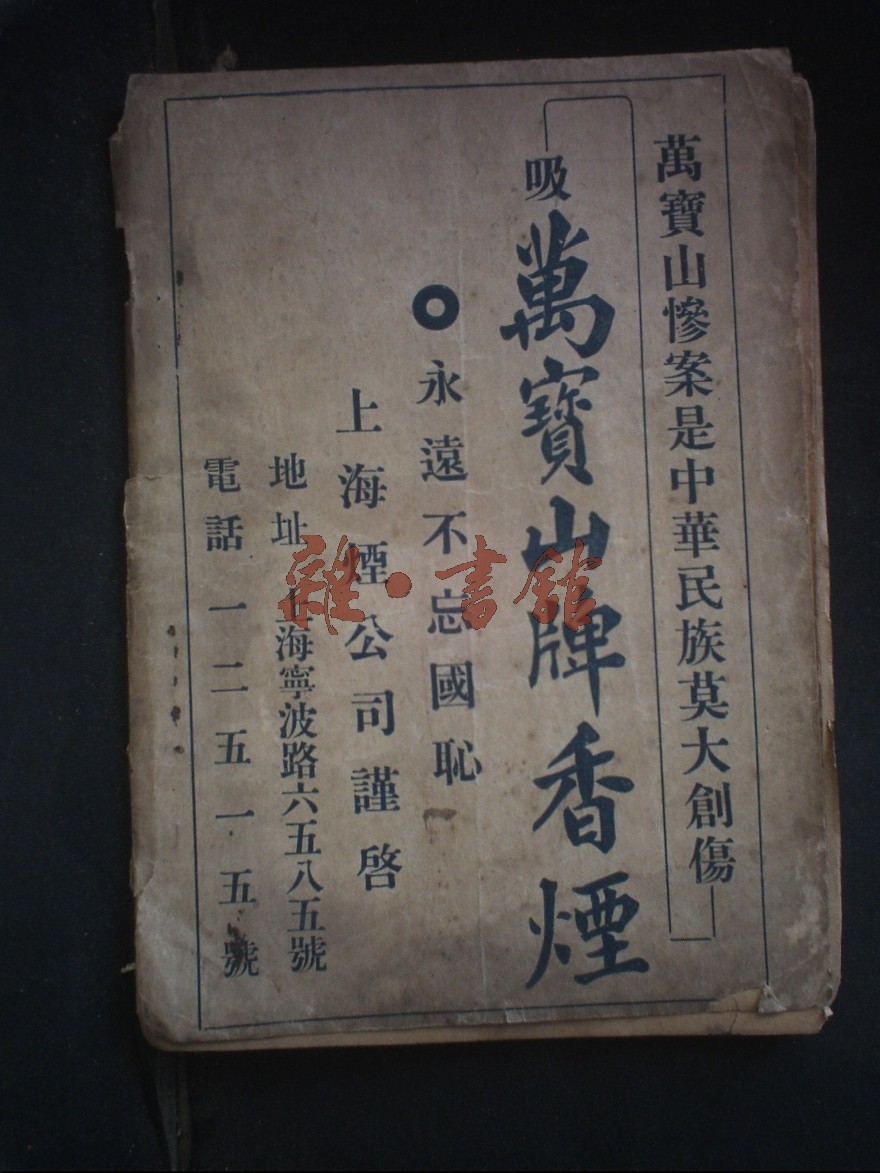 萬寶山慘案是中華民族莫大創傷
吸萬寶山牌香煙
永遠不忘國恥
上海煙公司謹啓
地址 上海寧波路六五八五號
電話一二五一五號
雜·書館